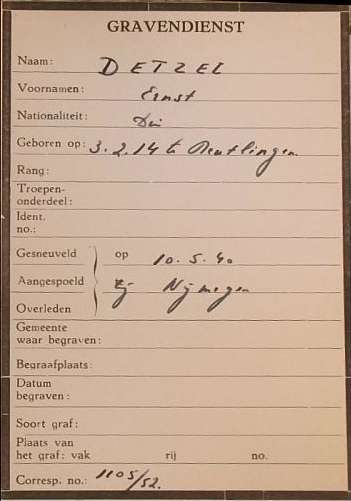 GRAVENDIENST
Naam: DETZEL
Voornamen: Ernst
Nationaliteit: Dui
Geboren op: 3.2.14 te Reutlingen
Rang:
Troepen-
onderdeel:
Ident.
no.:
Gesneuveld op 10.5.40
Aangespoeld bij Nijmegen
Overleden
Gemeente
waar begraven:
Begraafplaats:
Datum
begraven:
Soort graf:
Plaats van
het graf: vak rij no.
Corresp. no.: 1105/52.